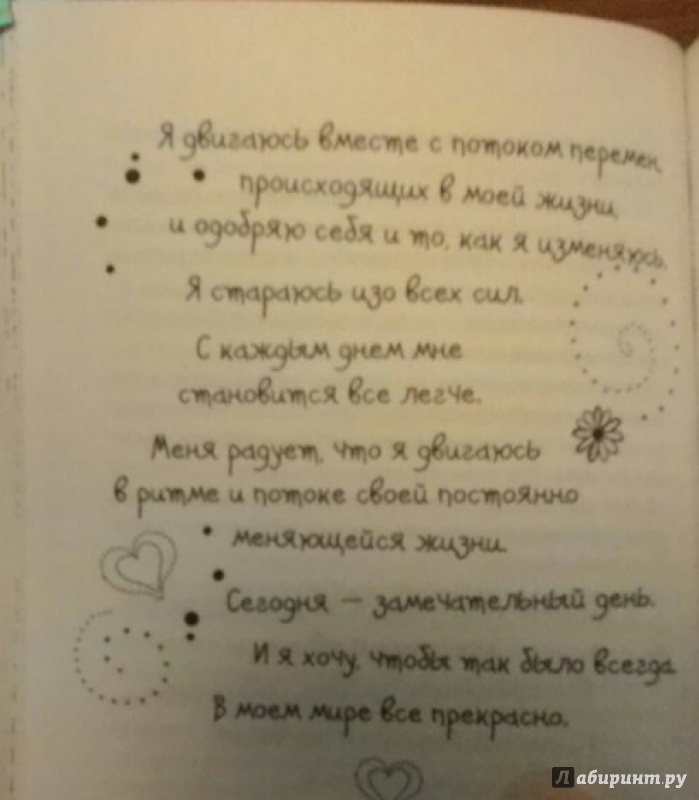 Я двигаюсь вместе с потоком перемен,
происходящих в моей жизни,
и одобряю себя и то, как я изменяюсь.
Я стараюсь изо всех сил.
С каждым днем мне
становится все легче.
Меня радует, что я двигаюсь
в ритме и потоке своей постоянно
меняющейся жизни.
Сегодня — замечательный день.
И я хочу, чтобы так было всегда.
В моем мире все прекрасно.
Лабиринт.ру